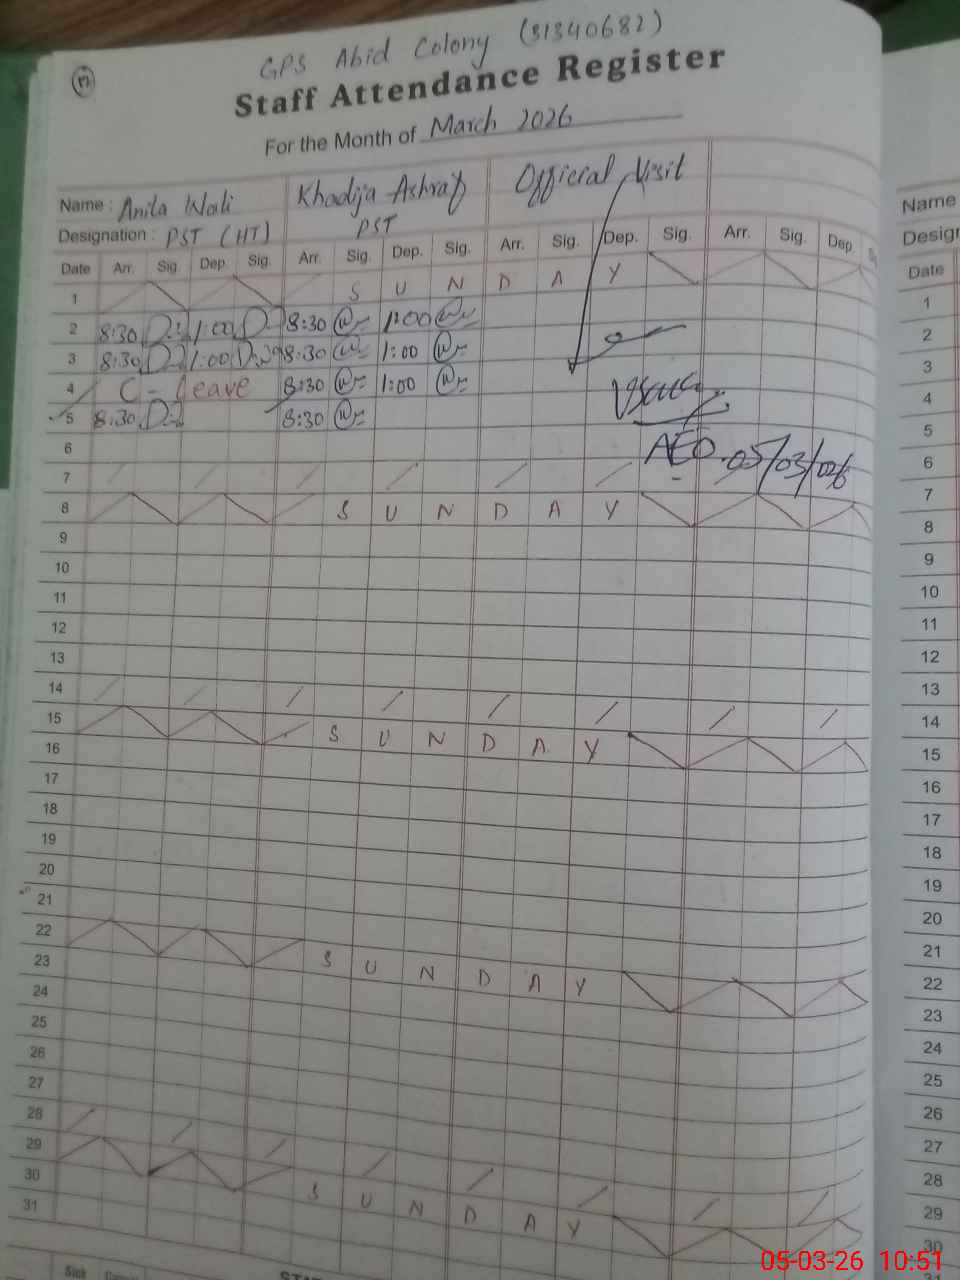 17
GPS Abid Colony (31340682)
Staff Attendance Register
For the Month of March 2026
Name : Anila Wali Khadija Ashraf Official Visit
Designation : PST (HT) PST
Date Arr. Sig. Dep. Sig. Arr. Sig. Dep. Sig. Arr. Sig. Dep. Sig. Arr. Sig. Dep.
1 S U N D A Y
2 8:30 1:00 8:30 1:00
3 8:30 1:00 8:30 1:00
4 C - Leave 8:30 1:00
5 8:30 8:30
AEO. 05/03/026
6
7
8 S U N D A Y
9
10
11
12
13
14
15 S U N D A Y
16
17
18
19
20
21
22 S U N D A Y
23
24
25
26
27
28
29 S U N D A Y
30
31
Sick
Name
Date
1
2
3
4
5
6
7
8
9
10
11
12
13
14
15
16
17
18
19
20
21
22
23
24
25
26
27
28
29
30
05-03-26 10:51